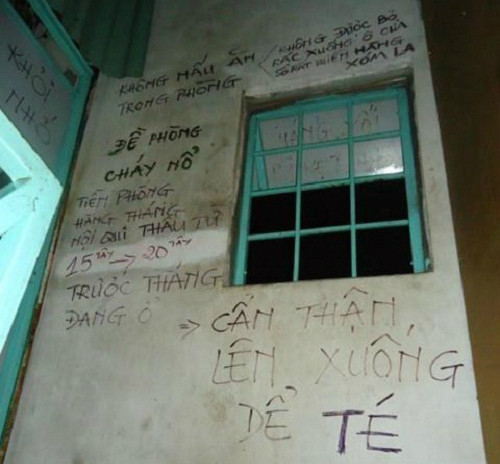 KHÔNG NẤU ĂN
TRONG PHÒNG
KHÔNG ĐƯỢC BỎ
RÁC XUỐNG Ô CỬA
HÀNG
XÓM LA
ĐỀ PHÒNG
CHÁY NỔ
TIỀN PHÒNG
HÀNG THÁNG
NỘI QUI THÂU TỪ
15 TÂY → 20 TÂY
TRƯỚC THÁNG
ĐANG Ở
⇒ CẨN THẬN
LÊN XUỐNG
DỄ TÉ
KHÓI
NHỎ